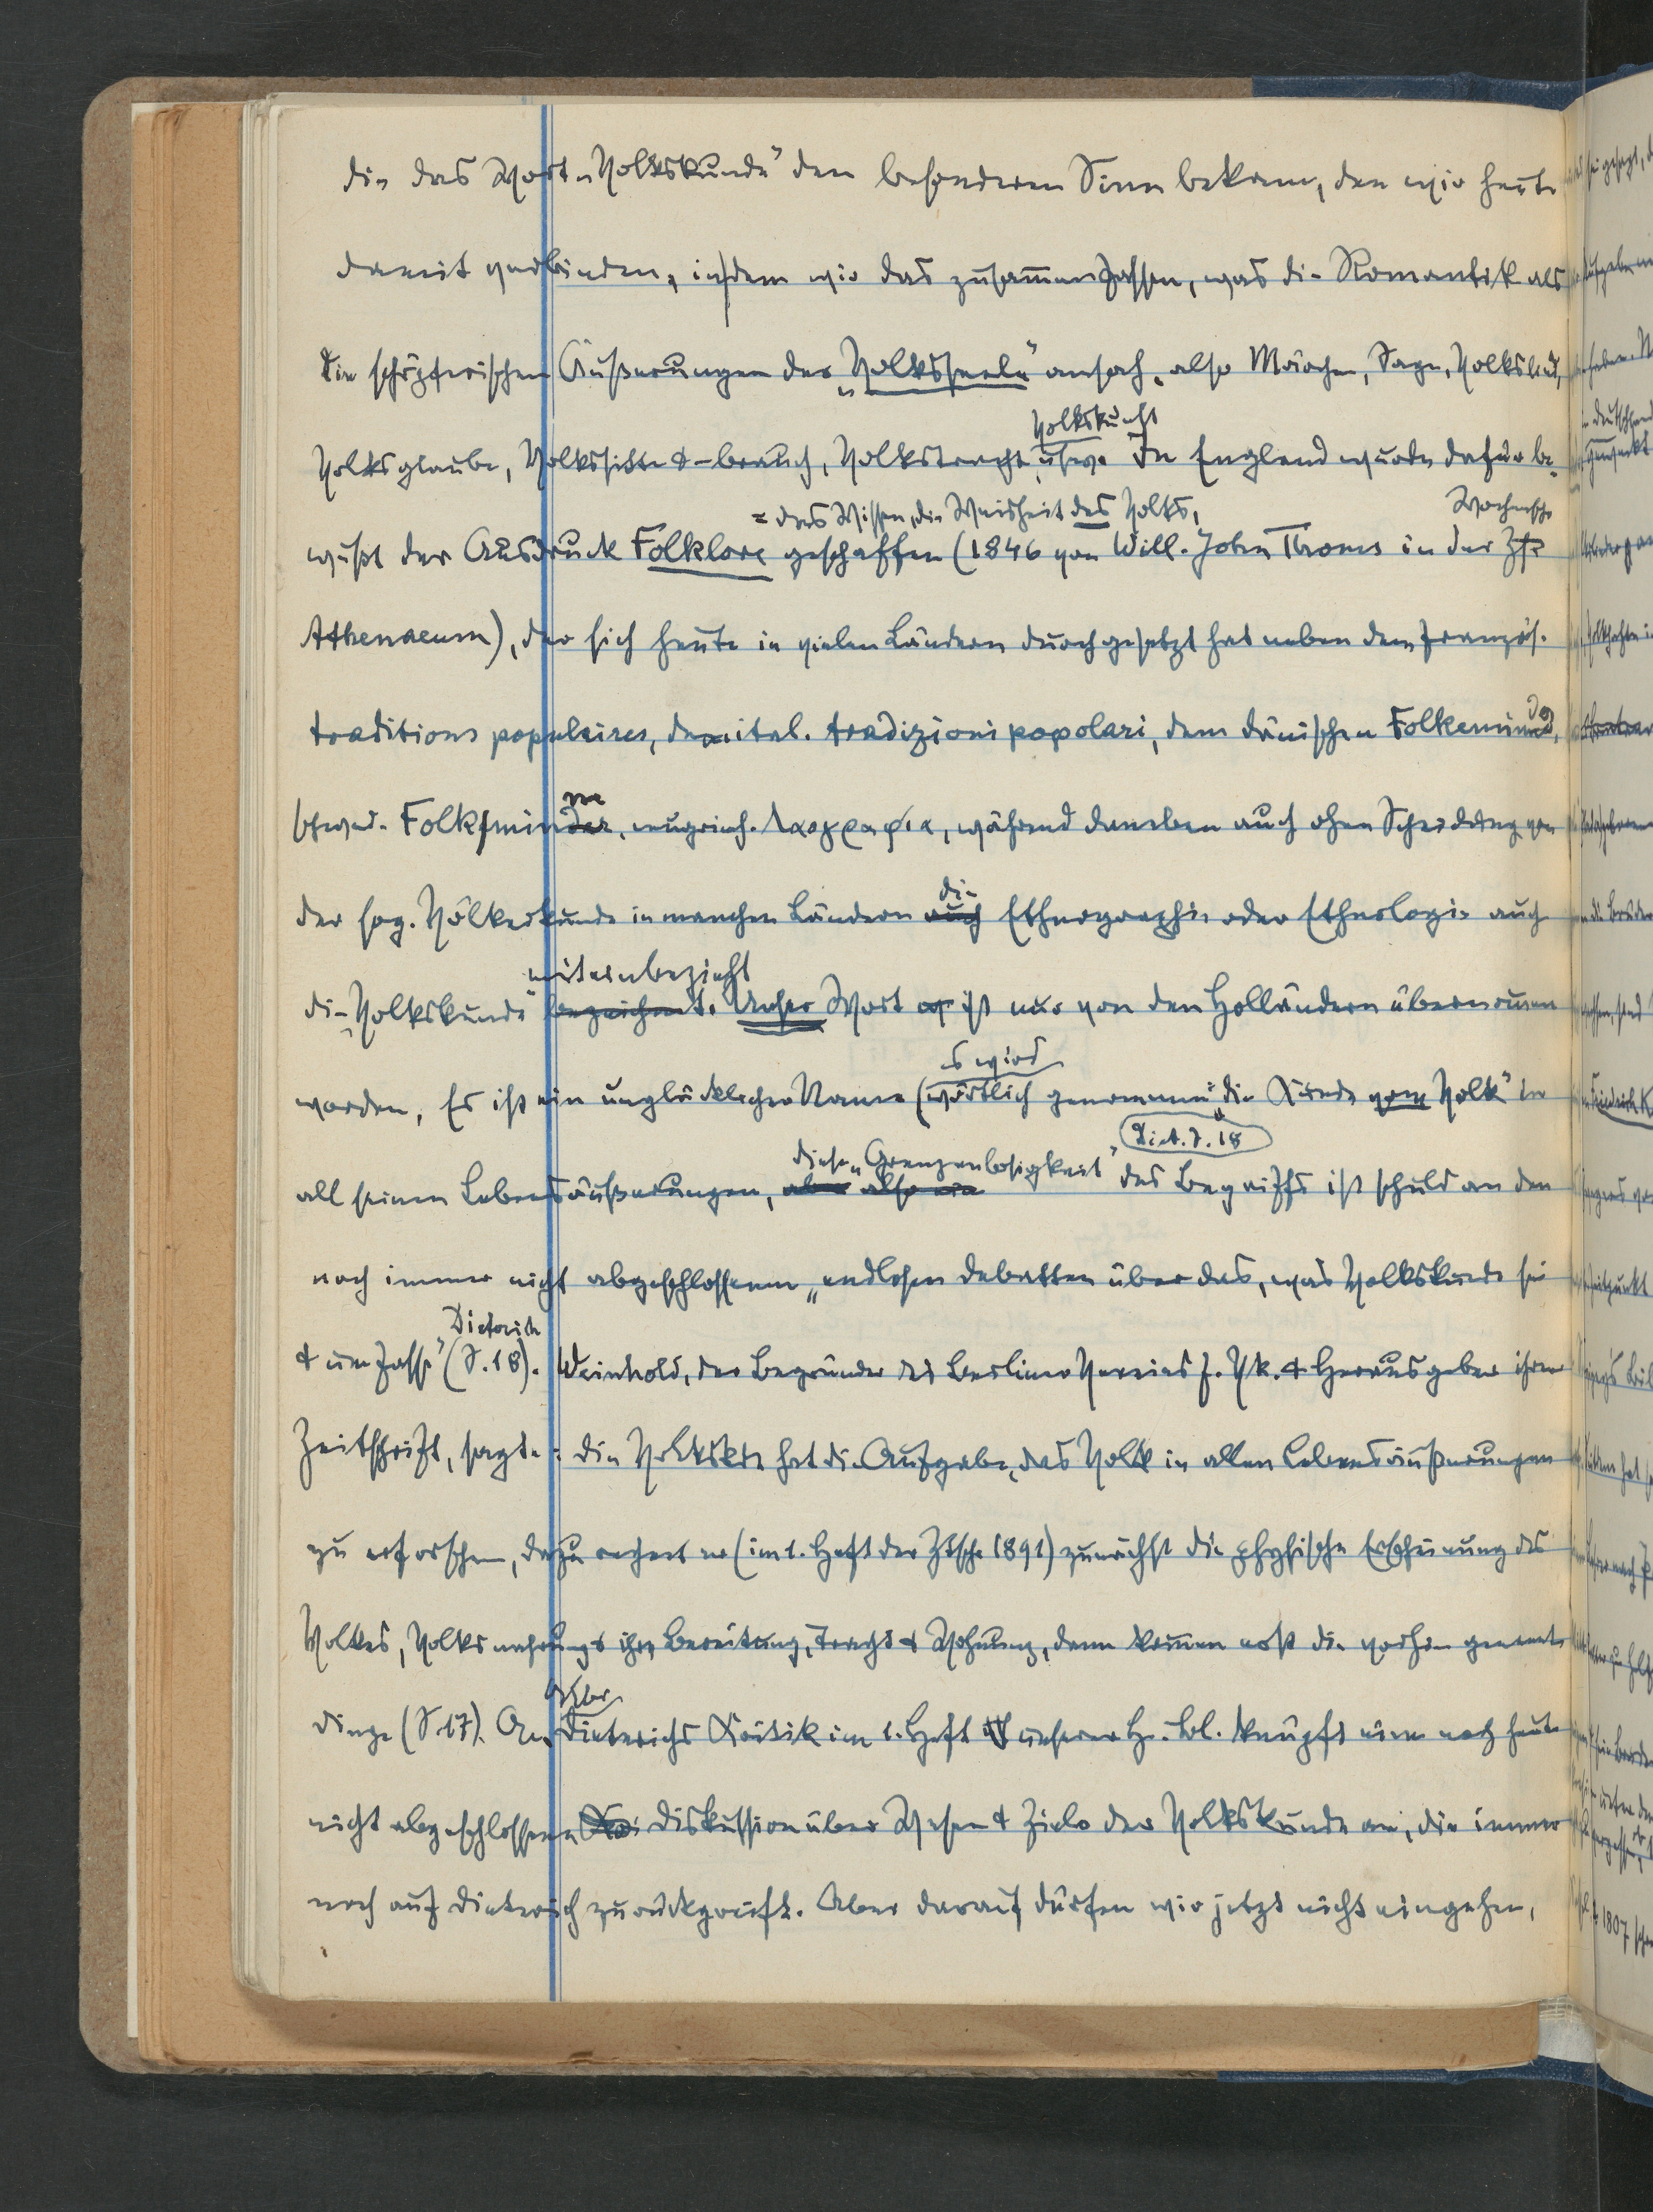 die das Wort „Volkskunde" den besonderen Sinn bekam, den wir heute
damit verbinden, indem wir das zusammenfassen, was die Romantik als
die schöpferischen Äußerungen der „Volksseele" ansah, also Märchen, Sage, Volkslied,
Volkskunst
Volksglaube, Volkssitte & -brauch, Volkstracht, usw. In England wurde dafür be-
= das Wissen, die Weisheit des Volks,
Wochenschr
wußt der Ausdruck Folklore geschaffen (1846 von Will. John Thoms in der Zts
Athenaeum), der sich heute in vielen Ländern durchgesetzt hat neben dem französ.
traditions populaires, dem ital. tradizioni popolari, dem dänischen Folkeminde,
schwed. Folkminnen, neugriech. Λαογραφια, während daneben auch ohne Scheidung von
die
der sog. Völkerkunde in manchen Ländern auch Ethnographie oder Ethnologie auch
miteinbezieht
die „Volkskunde" bezeichnet. Unser Wort ist nur von den Holländern übernommen
worden, Es ist ein unglücklicher Name (wörtlich genommen
es wird
„die Kunde vom Volk" in
Diet. S. 18
diese „Grenzenlosigkeit"
all seinen Lebensäußerungen, aber also ein des Begriffs ist schuld an den
noch immer nicht abgeschlossenen „endlosen Debatten über das, was Volkskunde sei
Dieterich
& umfasse" (S. 18). Weinhold, der Begründer des Berliner Vereins f. Vk. & Herausgeber ihrer
Zeitschrift, sagte: die Volkskde hat die Aufgabe, das Volk in allen Lebensäußerungen
zu erforschen, dazu rechnet er (im 1. Heft der Ztschr 1891) zunächst die physische Erscheinung des
Volkes, Volksnahrung & ihre Bereitung, Tracht & Wohnung, dann kommen erst die vorhin genannten
Dinge (S. 17). An Dieterichs Kritik im 1. Heft unserer H. Bl. knüpft eine noch heute
nicht abgeschlossene Diskussion über Wesen & Ziele der Volkskunde an, die immer
noch auf Dieterich zurückgreift. Aber darauf dürfen wir jetzt nicht eingehen,